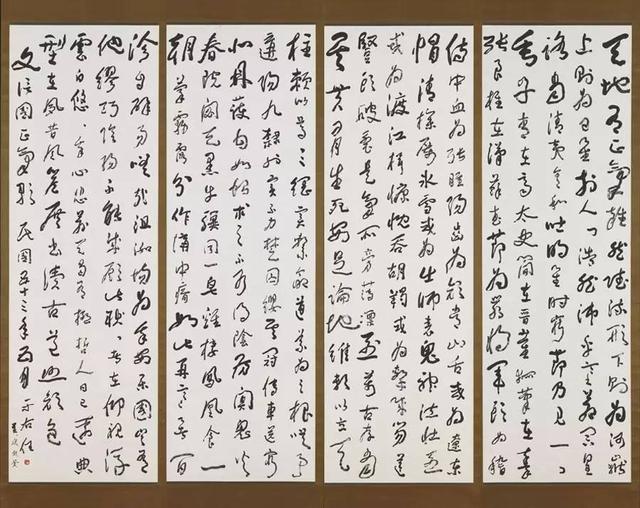 天地有正氣雜然賦流形下則為河嶽
上則為日星於人曰浩然沛乎塞蒼冥皇
路當清夷含和吐明庭時窮節乃見一一
垂丹青在齊太史簡在晉董狐筆在秦
張良椎在漢蘇武節為嚴將軍頭為嵇
侍中血為張睢陽齒為顏常山舌或為遼東
帽清操厲冰雪或為出師表鬼神泣壯烈
或為渡江楫慷慨吞胡羯或為擊賊笏逆
豎頭破裂是氣所旁薄凜烈萬古存當
其貫日月生死安足論地維賴以立天
柱賴以尊三綱實繫命道義為之根嗟予
遘陽九隸也實不力楚囚纓其冠傳車送窮
北鼎鑊甘如飴求之不可得陰房闃鬼火
春院閟天黑牛驥同一皂雞棲鳳凰食一
朝蒙霧露分作溝中瘠如此再寒暑百
沴自辟易嗟哉沮洳場為我安樂國豈有
他繆巧陰陽不能賊顧此耿耿在仰視浮
雲白悠悠我心悲蒼天曷有極哲人日已遠典
型在夙昔風簷展書讀古道照顏色
文信國正氣歌 民國五十三年 月 于右任